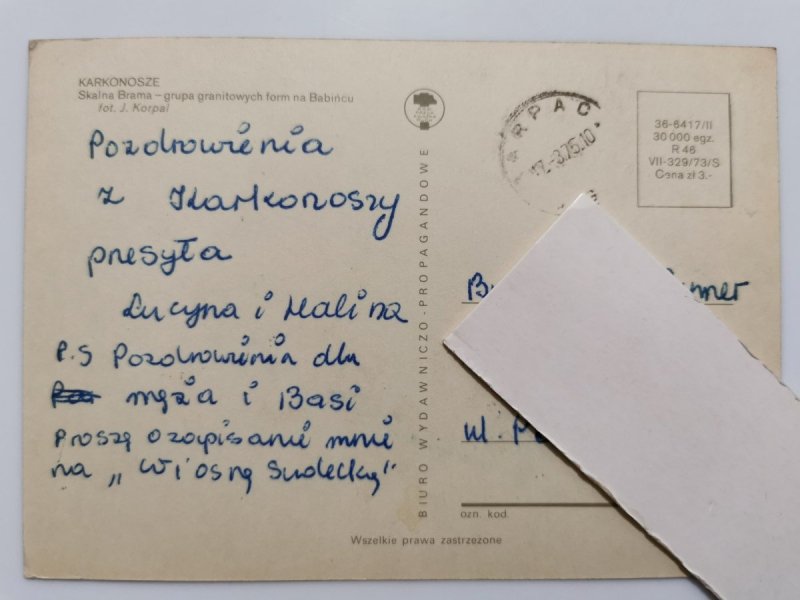 KARKONOSZE
Skalna Brama – grupa granitowych form na Babińcu
fot. J. Korpal
Pozdrowienia
z Karkonoszy
presyła
Lucyna i Halina
P.S Pozdrowienia dla
męża i Basi
proszę o zapisanie mnie
na „Wiosnę Sudecką"
BIURO WYDAWNICZO-PROPAGANDOWE
ARPAC
17.-3.75.10
36-6417/II
30 000 egz.
R 46
VII-329/73/S
Cena zł 3.-
ul.
ozn. kod.
Wszelkie prawa zastrzeżone